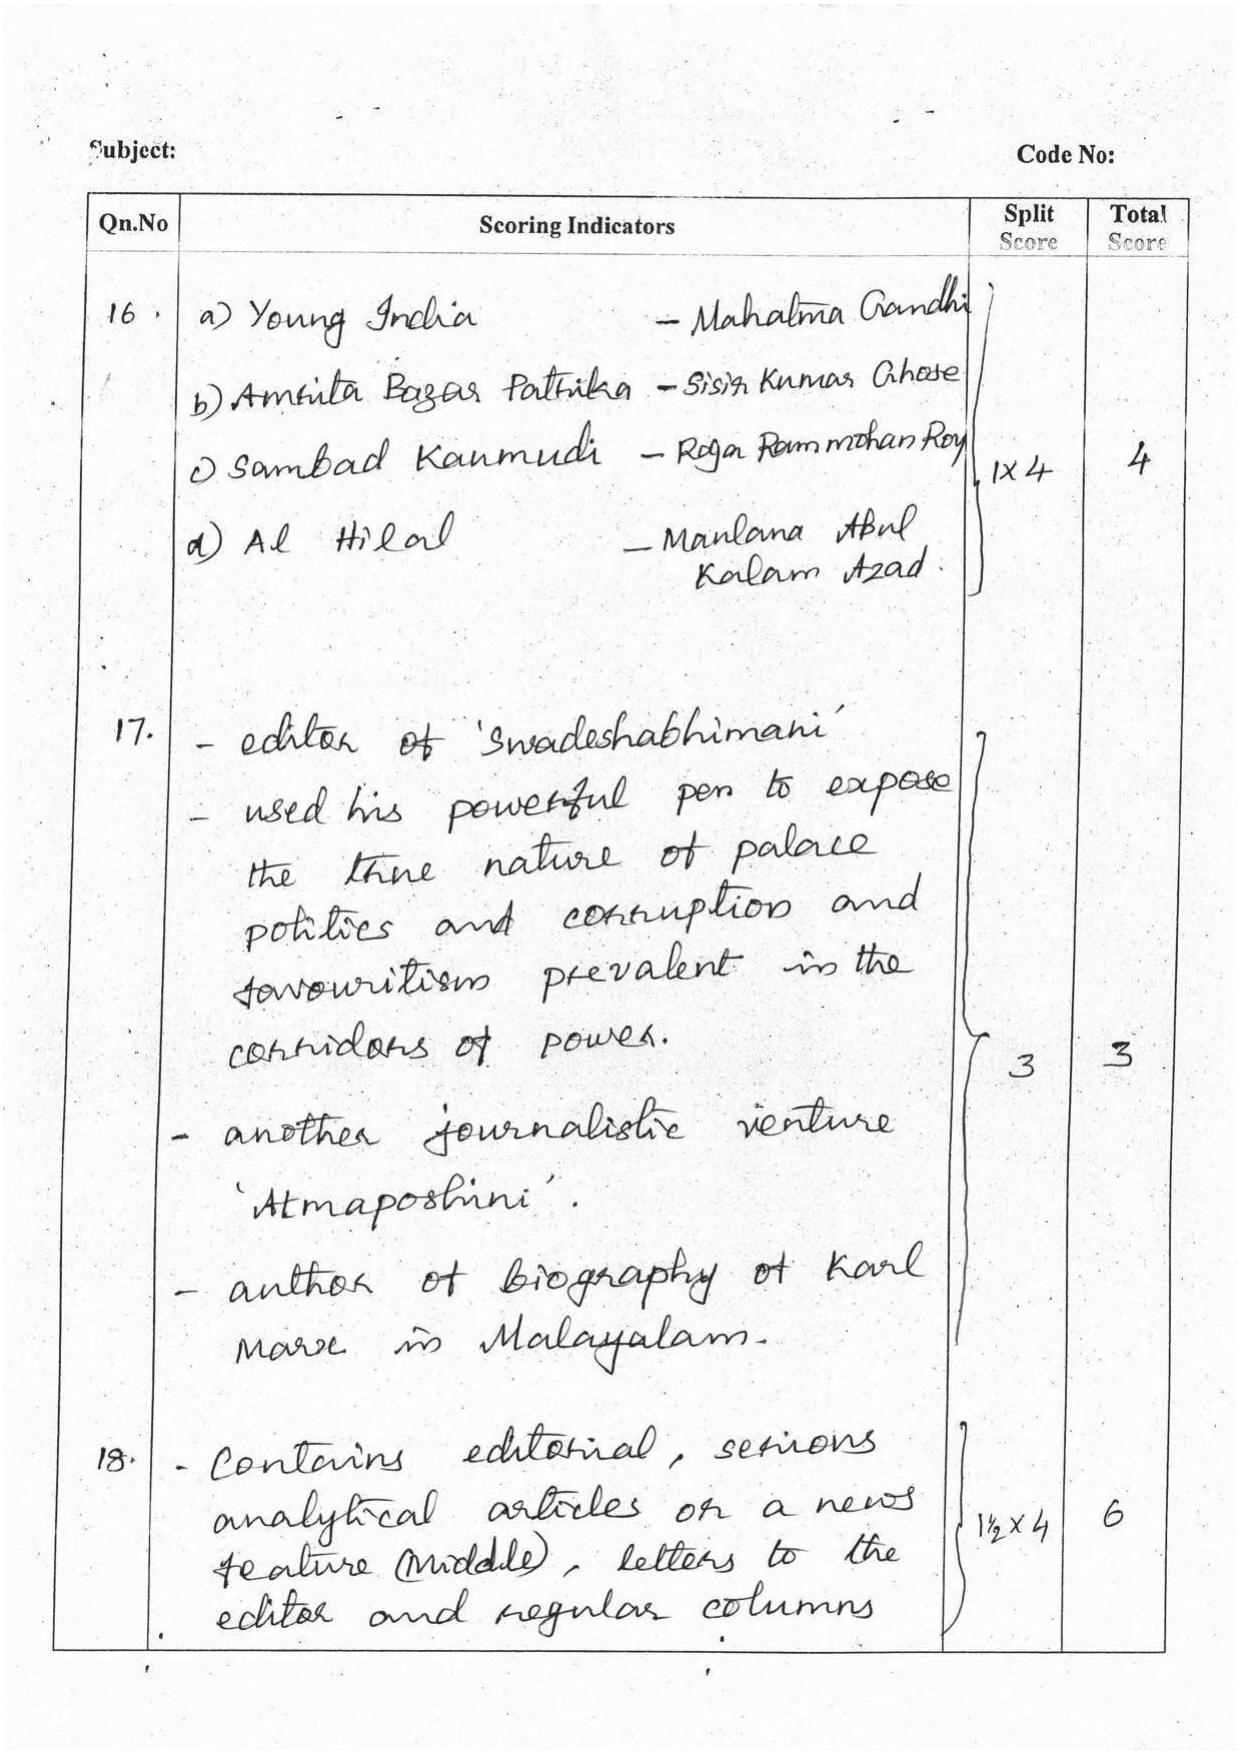 Subject:
Code No:
Qn.No
Scoring Indicators
Split Score
Total Score
16. a) Young India - Mahatma Gandhi
b) Amrita Bazar Patrika - Sisir Kumar Ghose
c) Sambad Kaumudi - Raja Rammohan Roy
1x4
4
d) Al Hilal - Maulana Abul
Kalam Azad.
17. - editor of 'Swadeshabhimani'
- used his powerful pen to expose
the true nature of palace
politics and corruption and
favouritism prevalent in the
corridors of power.
3
3
- another journalistic venture
'Atmaposhini'.
- author of biography of Karl
Marx in Malayalam.
18. - Contains editorial, serious
analytical articles or a news
1½ x 4
6
feature (Middle), letters to the
editor and regular columns